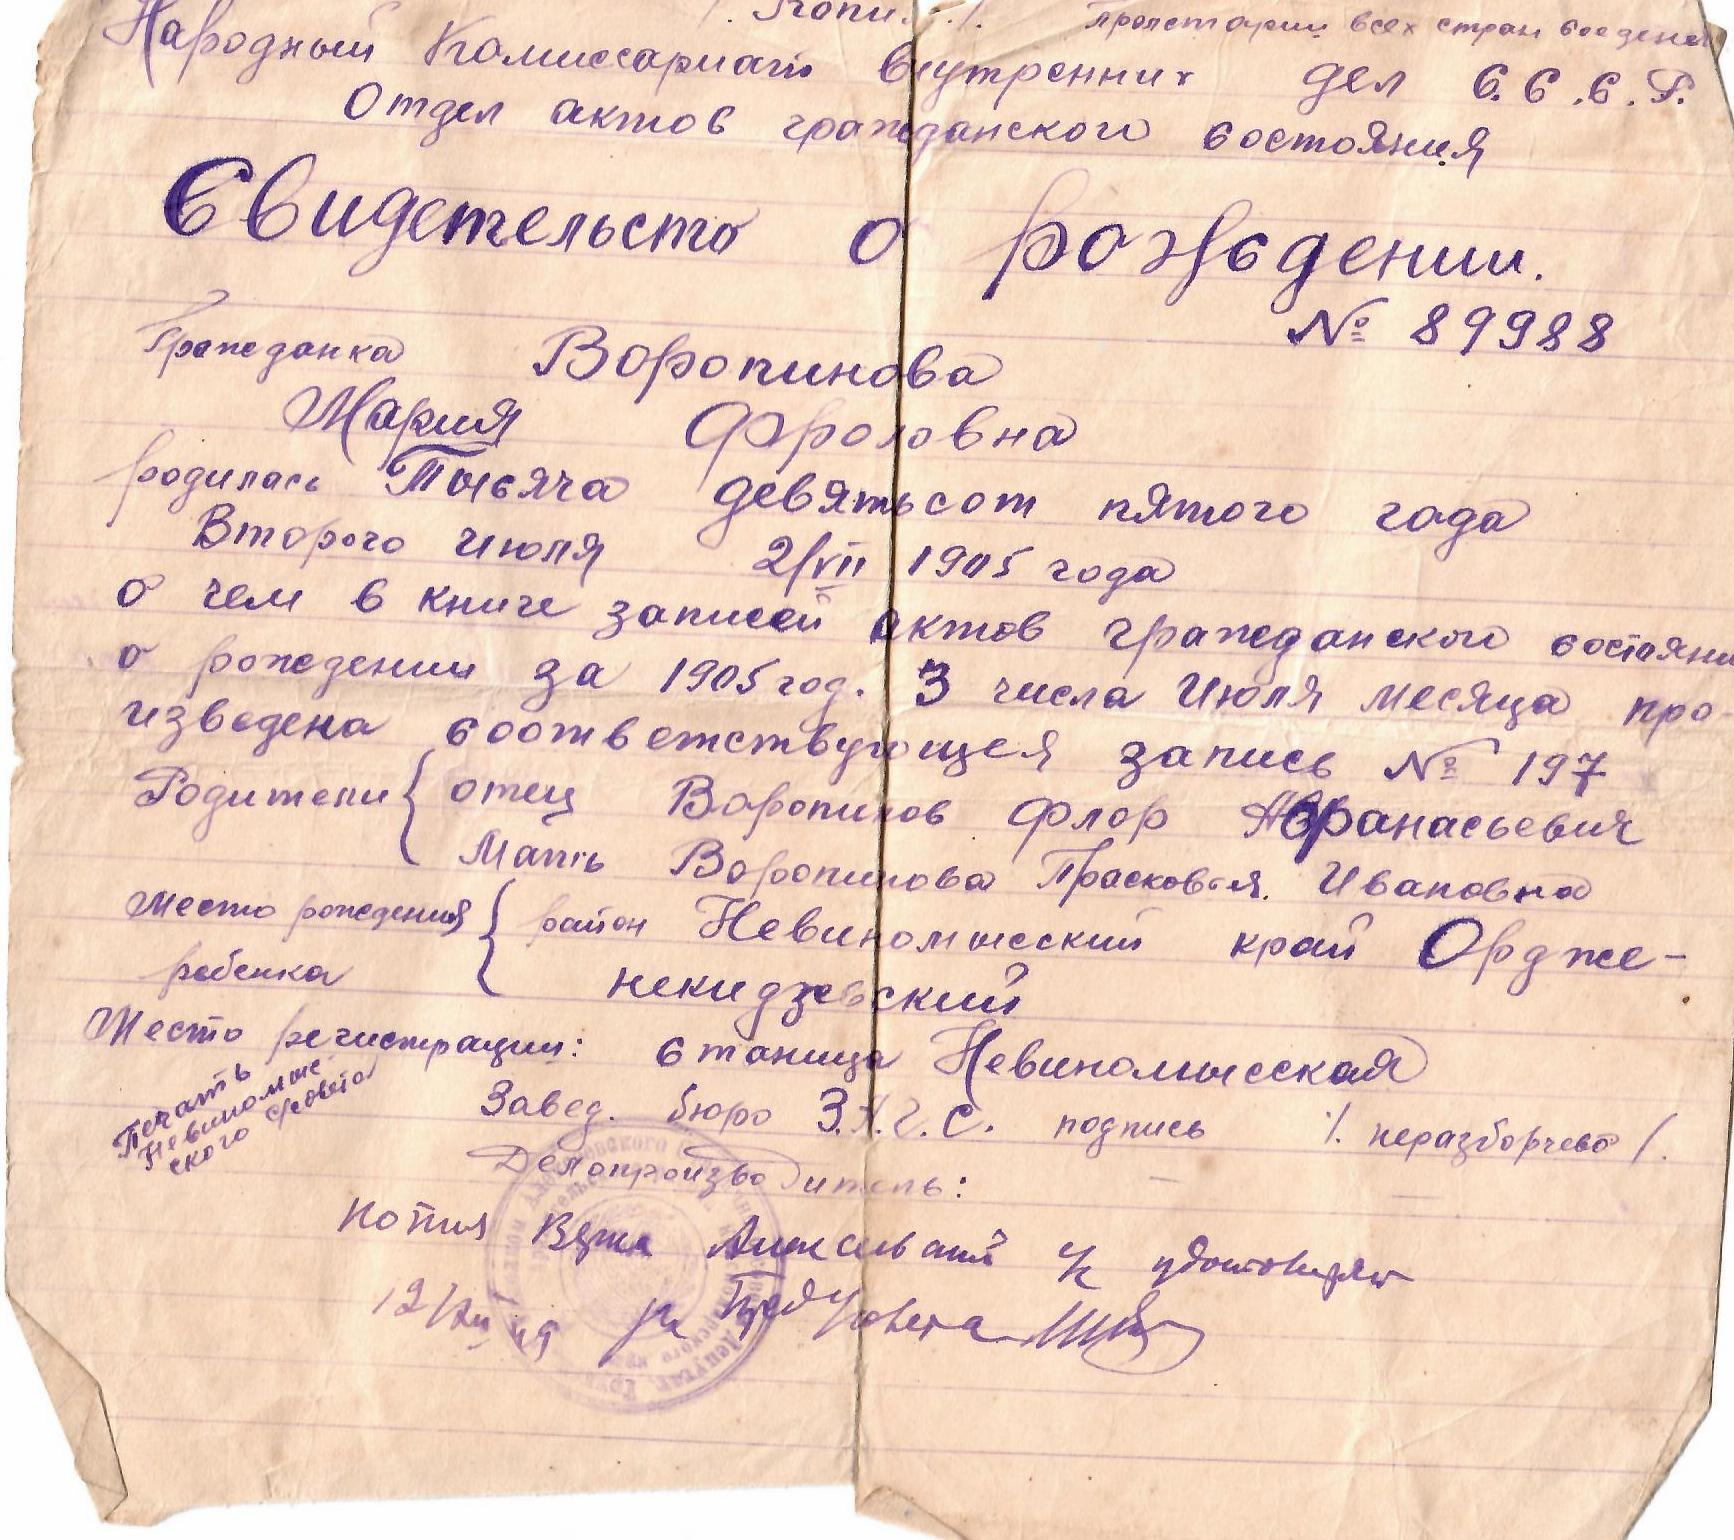 Пролетарии всех стран соедене
Народный Комиссариат внутренних дел С.С.С.Р.
Отдел актов гражданского состояния
Свидетельсто о рождении.
№ 89988
Гражданка Воропинова
Мария Фроловна
родилась Тысяча девятьсот пятого года
Второго Июля 2/VII 1905 года
о чем в книге записей актов гражданского состояни
о рождении за 1905 год. 3 числа Июля месяца про
изведена соответствующея запись № 197
Родители { отец Воропинов Флор Афанасьевич
Мать Воропинова Прасковья Ивановна
Место рождения { район Невиномысский край Ордже-
ребенка некидзевский
Место регистрации: станица Невиномысская
Печать Невиномысского с/совета
Завед. бюро З.А.Г.С. подпись /. неразборчево /.
Делопроизводитель:
Копия Верна удостоверяю
12/XII